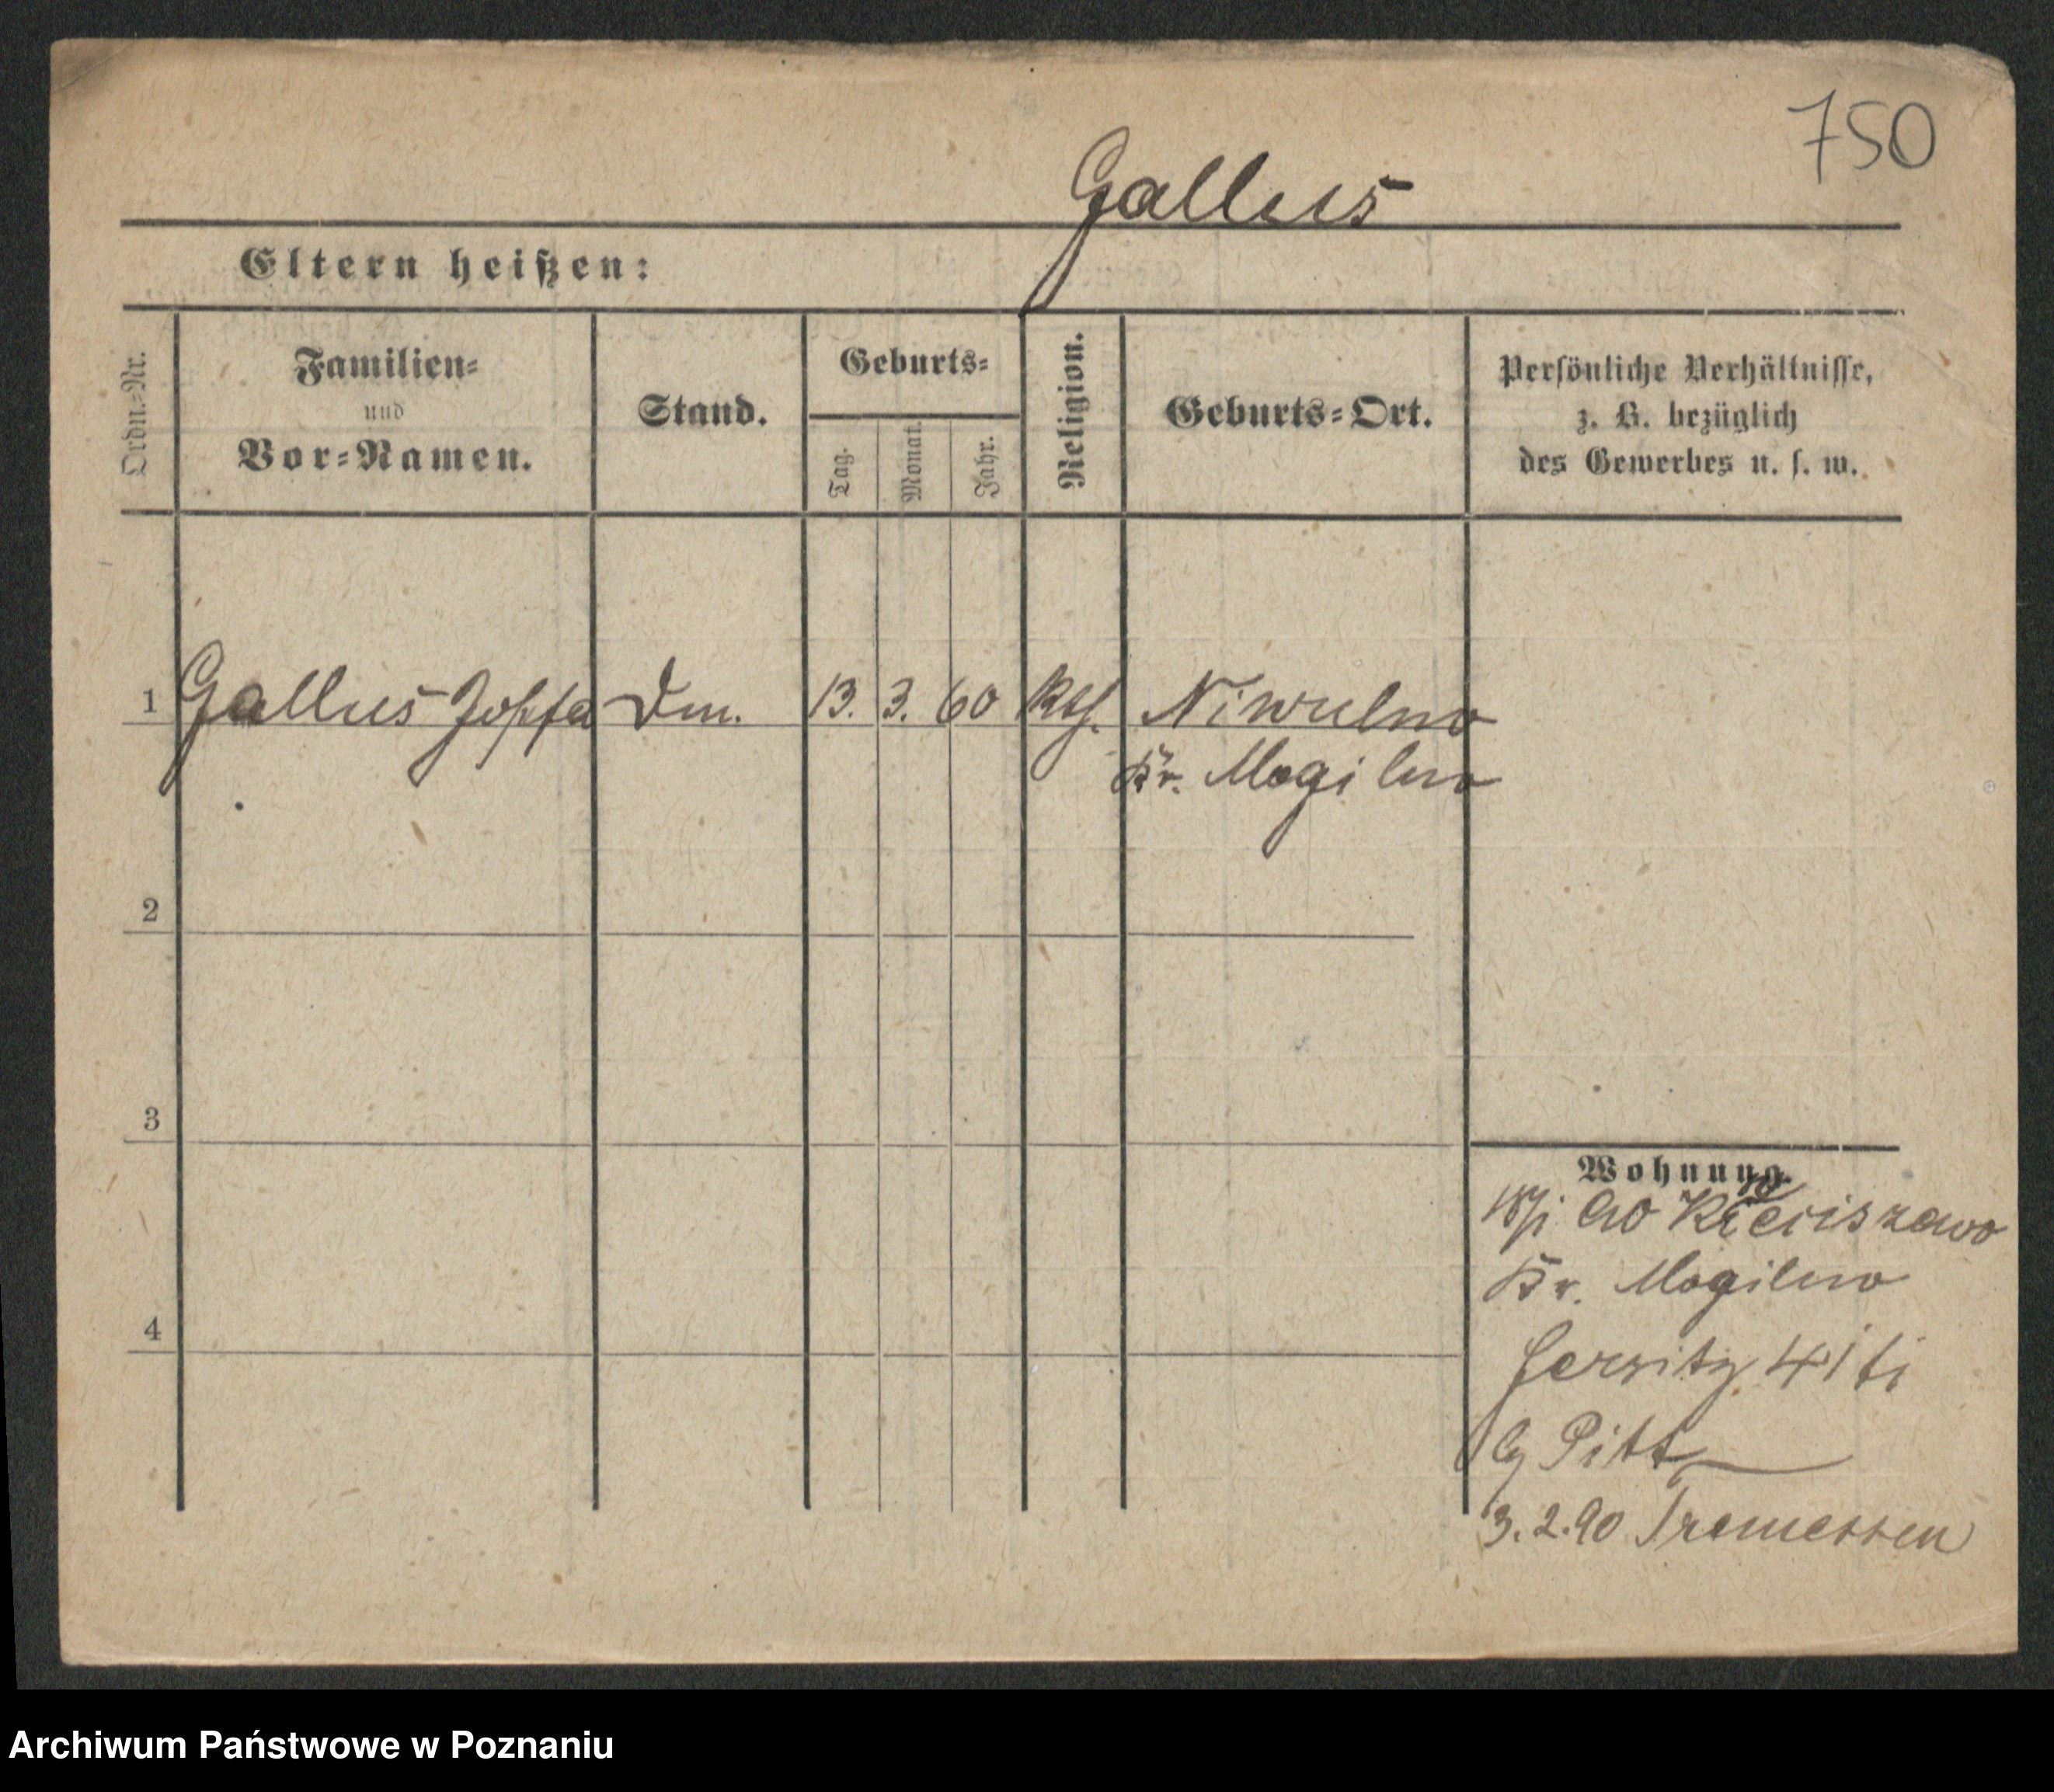 750
Gallus
Eltern heißen:
Ordn.-Nr.
Familien-
und
Vor-Namen.
Stand.
Geburts-
Tag.
Monat.
Jahr.
Religion.
Geburts-Ort.
Persönliche Verhältnisse,
z. B. bezüglich
des Gewerbes u. s. w.
1 Gallus 13. 3. 60 kth.
Kr. Mogilno
2
3
4
Wohnung.
Kr. Mogilno
Jersitz 41
3.2.90 Tremessen
Archiwum Państwowe w Poznaniu